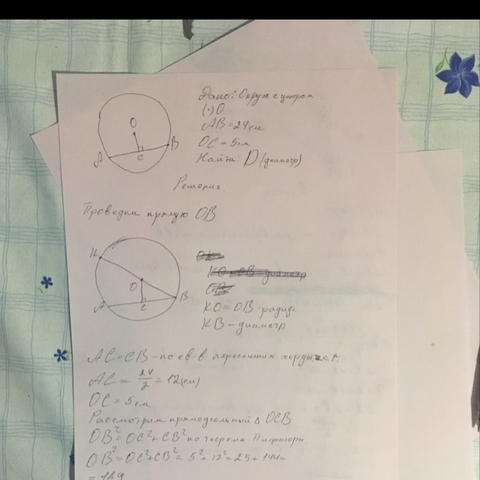 Дано: Окруж с центром
(·) O
AB = 24 см
OC = 5 см
Найти: D (диаметр)
O
A
C
B
Решение
Проведем прямую OB
K
O
A
C
B
KO = OB - радиус
KB - диаметр
AC = CB - по св-в
AC = 24/2 = 12 (см)
OC = 5 см
Рассмотрим прямоугольный Δ OCB
OB² = OC² + CB² по теореме Пифагора
OB² = OC² + CB² = 5² + 12² = 25 + 144 =
= 169